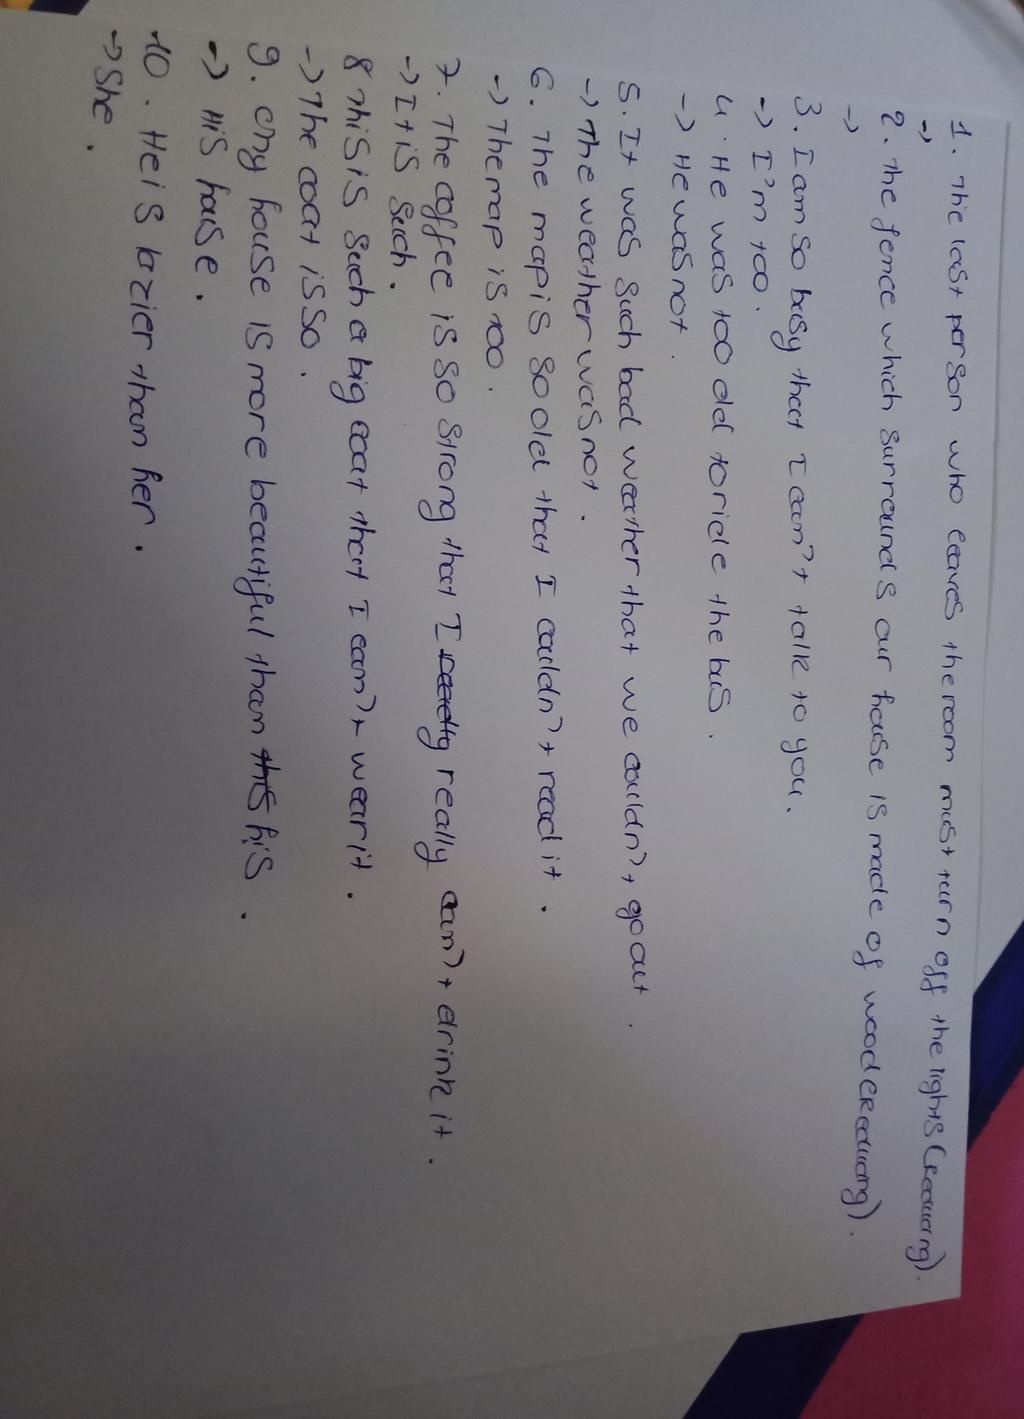 1. The last person who leaves the room must turn off the lights (Reducing).
->
2. The fence which surrounds our house is made of wood (Reducing).
->
3. I am so busy that I can't talk to you.
-> I'm too.
4. He was too old to ride the bus.
-> He was not.
5. It was such bad weather that we couldn't go out.
-> The weather was not.
6. The map is so old that I couldn't read it.
-> The map is too.
7. The coffee is so strong that I really can't drink it.
-> It is such.
8 This is such a big coat that I can't wear it.
-> The coat is so.
9. My house is more beautiful than his.
-> His house.
10. He is lazier than her.
-> She.